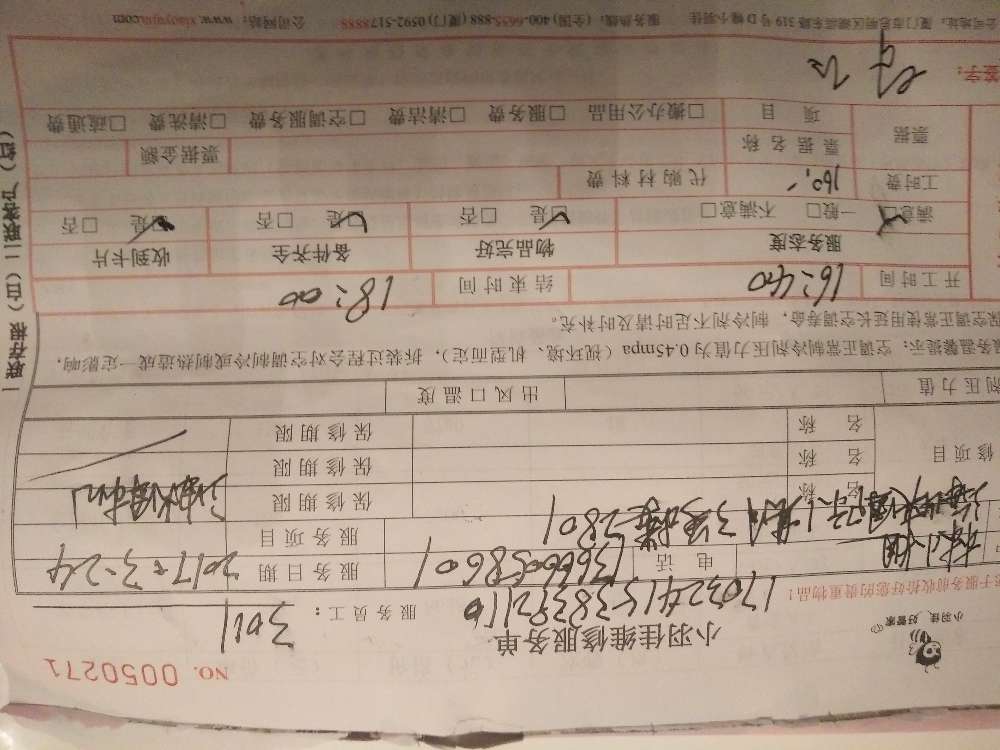 NO. 0050271
小羽佳 好管家
小羽佳维修服务单
服务员工：3011
170324153838392110
子服务前收拾好您的贵重物品！
电话 13666058601 服务日期 2017-3-24
服务项目
3号楼2801
修项目 名称 保修期限
名称 保修期限
名称 保修期限
剂压力值 出风口温度
服务温馨提示：空调正常制冷剂压力值为0.45mpa（视环境、机型而定），拆装过程会对空调制冷或制热造成一定影响，
保空调正常使用延长空调寿命，制冷剂不足时请及时补充。
开工时间 16:40 结束时间 18:00
服务态度 物品完好 备件齐全 收到卡片
满意□ 一般□ 不满意□ 是□ 否□ 是□ 否□ 是□ 否□
工时费 160,- 代购材料费
票据 票据名称 票据金额
项目 □搬办公用品 □服务费 □清洁费 □空调服务费 □清洗费 □疏通费
签字：
公司地址：厦门市思明区湖滨东路319号D幢小羽佳 服务热线：(全国) 400-6655-888 (厦门) 0592-5178888 公司网站：www.xiaoyujia.com
一联存根（白）二联客户（红）